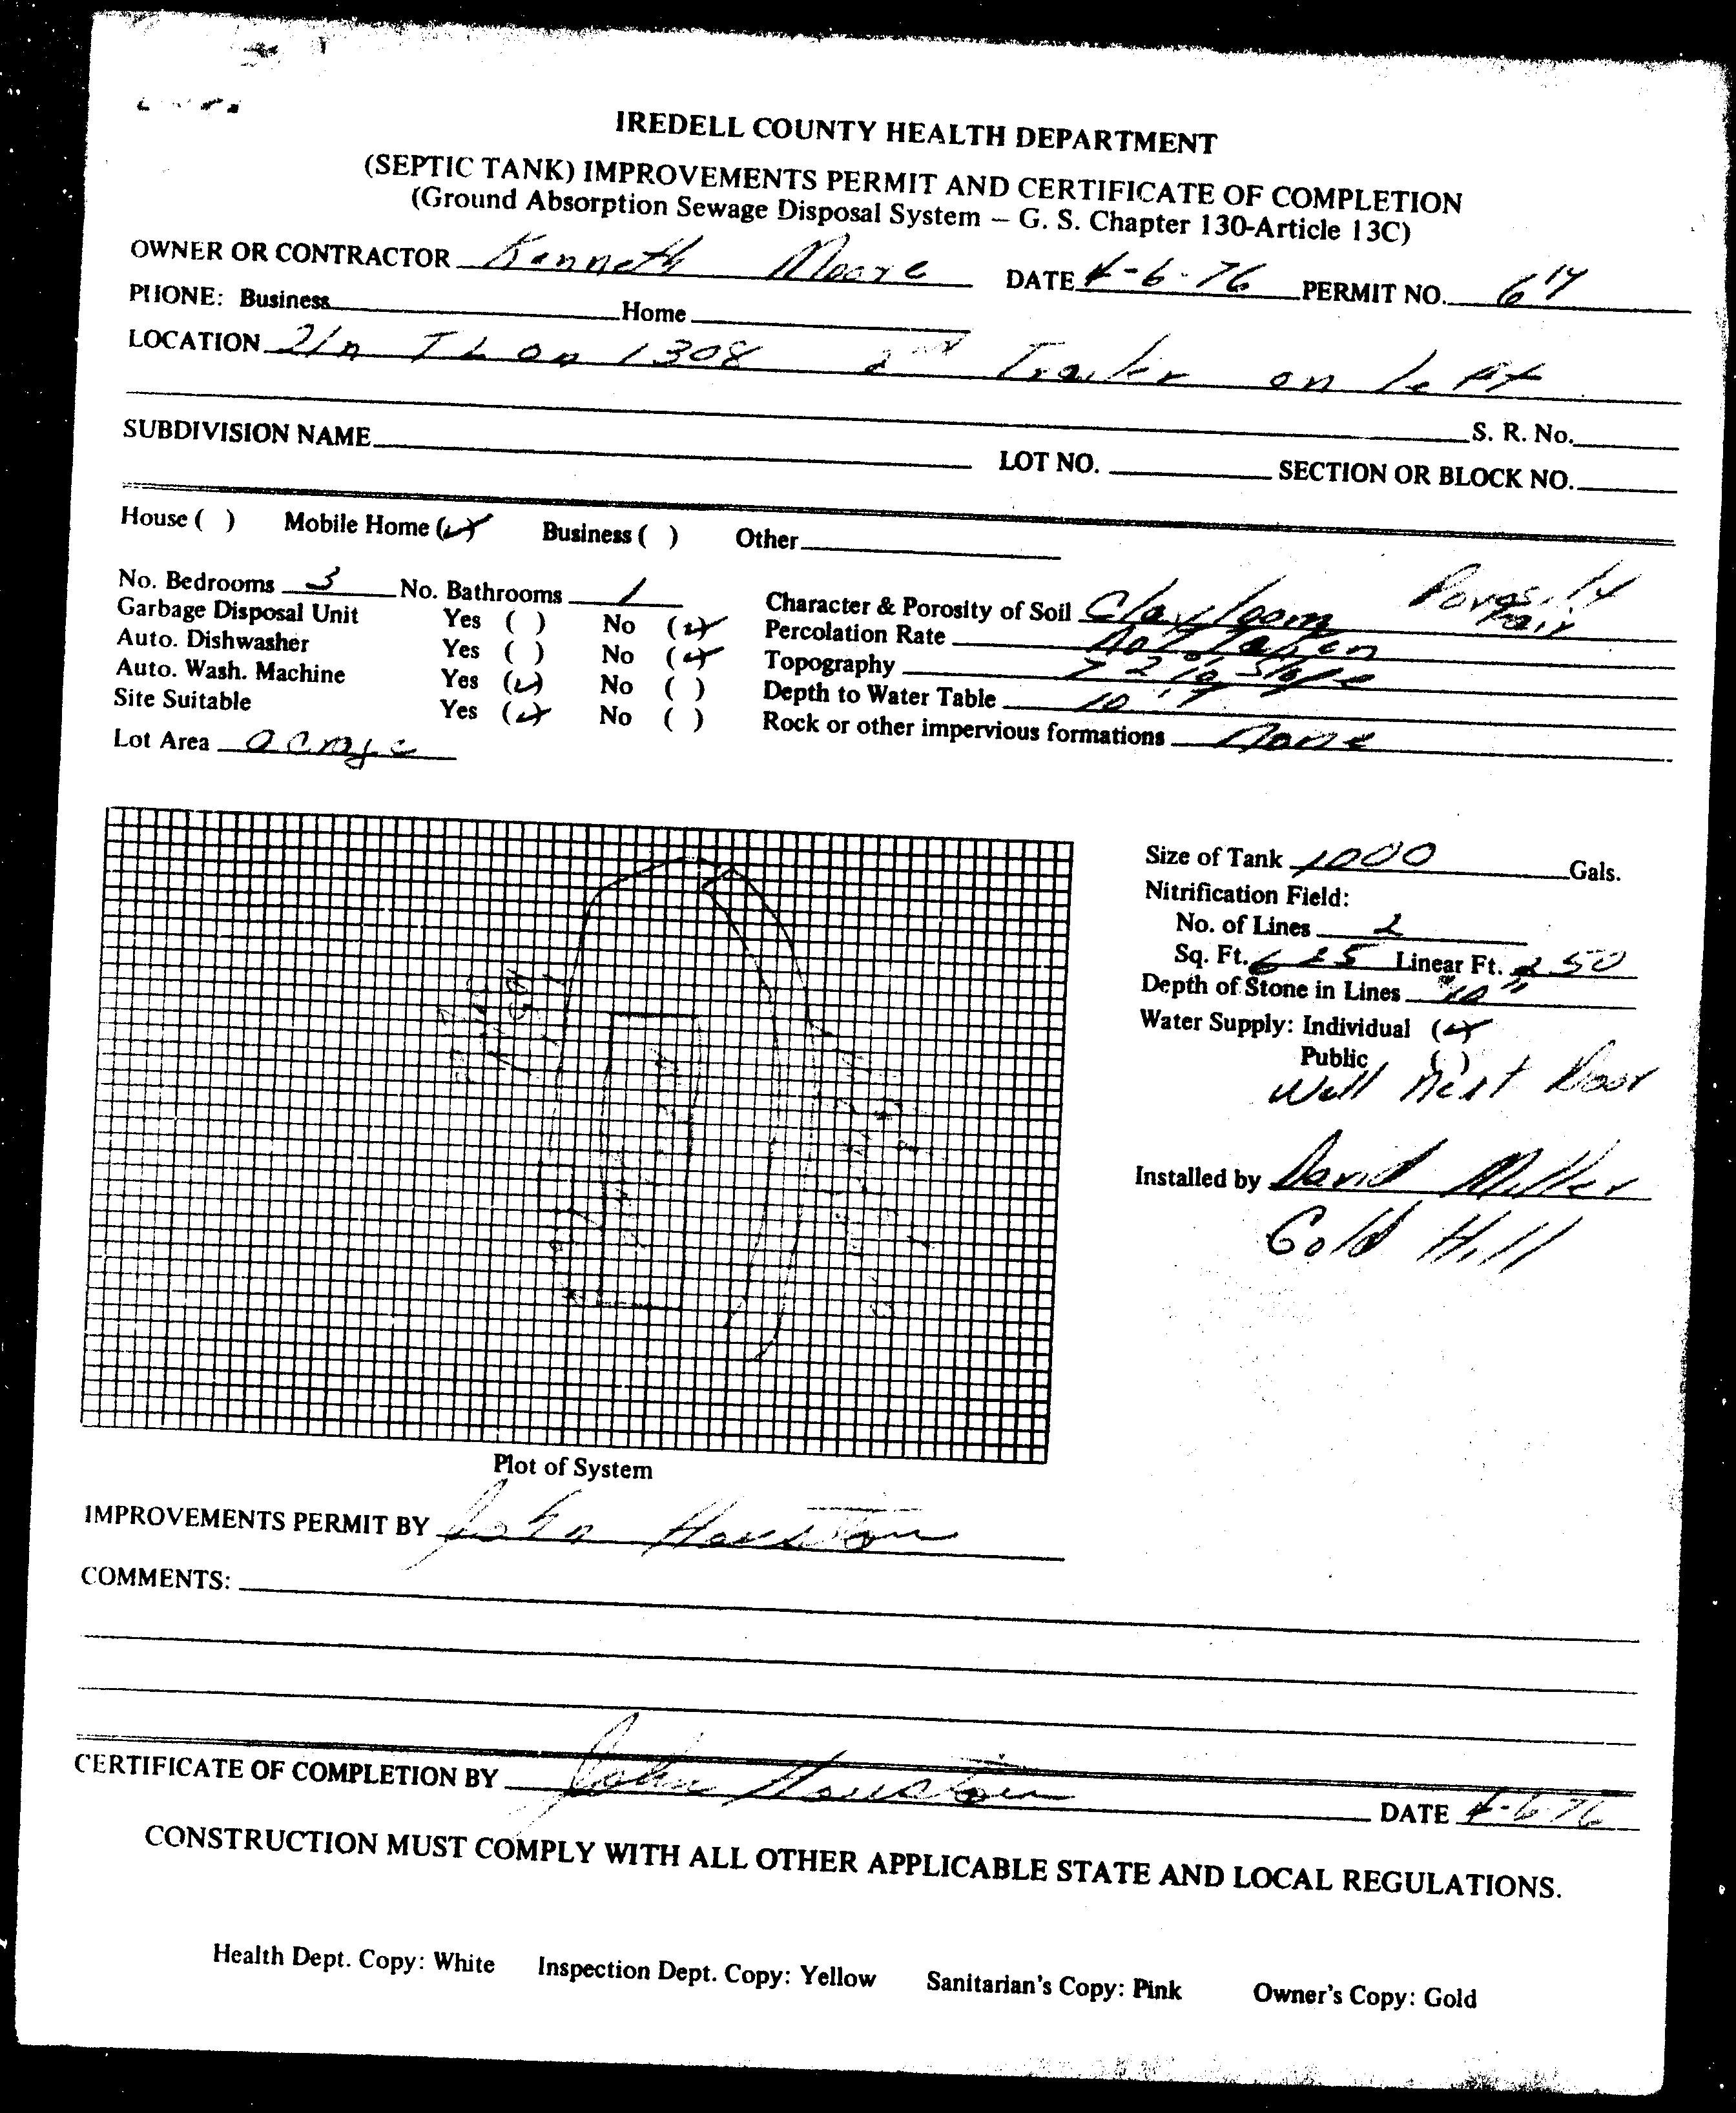 IREDELL COUNTY HEALTH DEPARTMENT
(SEPTIC TANK) IMPROVEMENTS PERMIT AND CERTIFICATE OF COMPLETION
(Ground Absorption Sewage Disposal System – G. S. Chapter 130-Article 13C)
OWNER OR CONTRACTOR Kenneth Moore DATE 4-6-76 PERMIT NO. 614
PHONE: Business Home
LOCATION 21n TL on 1308 2nd Trailer on left
S. R. No.
SUBDIVISION NAME LOT NO. SECTION OR BLOCK NO.
House ( ) Mobile Home (✓) Business ( ) Other
No. Bedrooms 3 No. Bathrooms 1
Garbage Disposal Unit Yes ( ) No (✓)
Auto. Dishwasher Yes ( ) No (✓)
Auto. Wash. Machine Yes (✓) No ( )
Site Suitable Yes (✓) No ( )
Lot Area acrage
Character & Porosity of Soil Clay loam Porosity Fair
Percolation Rate not taken
Topography > 2 % Slope
Depth to Water Table 10'
Rock or other impervious formations none
Size of Tank 1000 Gals.
Nitrification Field:
No. of Lines 2
Sq. Ft. 625 Linear Ft. 250
Depth of Stone in Lines 10"
Water Supply: Individual (✓)
Public ( )
Well Next Door
Installed by David Miller
Gold Hill
Plot of System
IMPROVEMENTS PERMIT BY John Houston
COMMENTS:
CERTIFICATE OF COMPLETION BY John Houston DATE 4-6-76
CONSTRUCTION MUST COMPLY WITH ALL OTHER APPLICABLE STATE AND LOCAL REGULATIONS.
Health Dept. Copy: White Inspection Dept. Copy: Yellow Sanitarian's Copy: Pink Owner's Copy: Gold